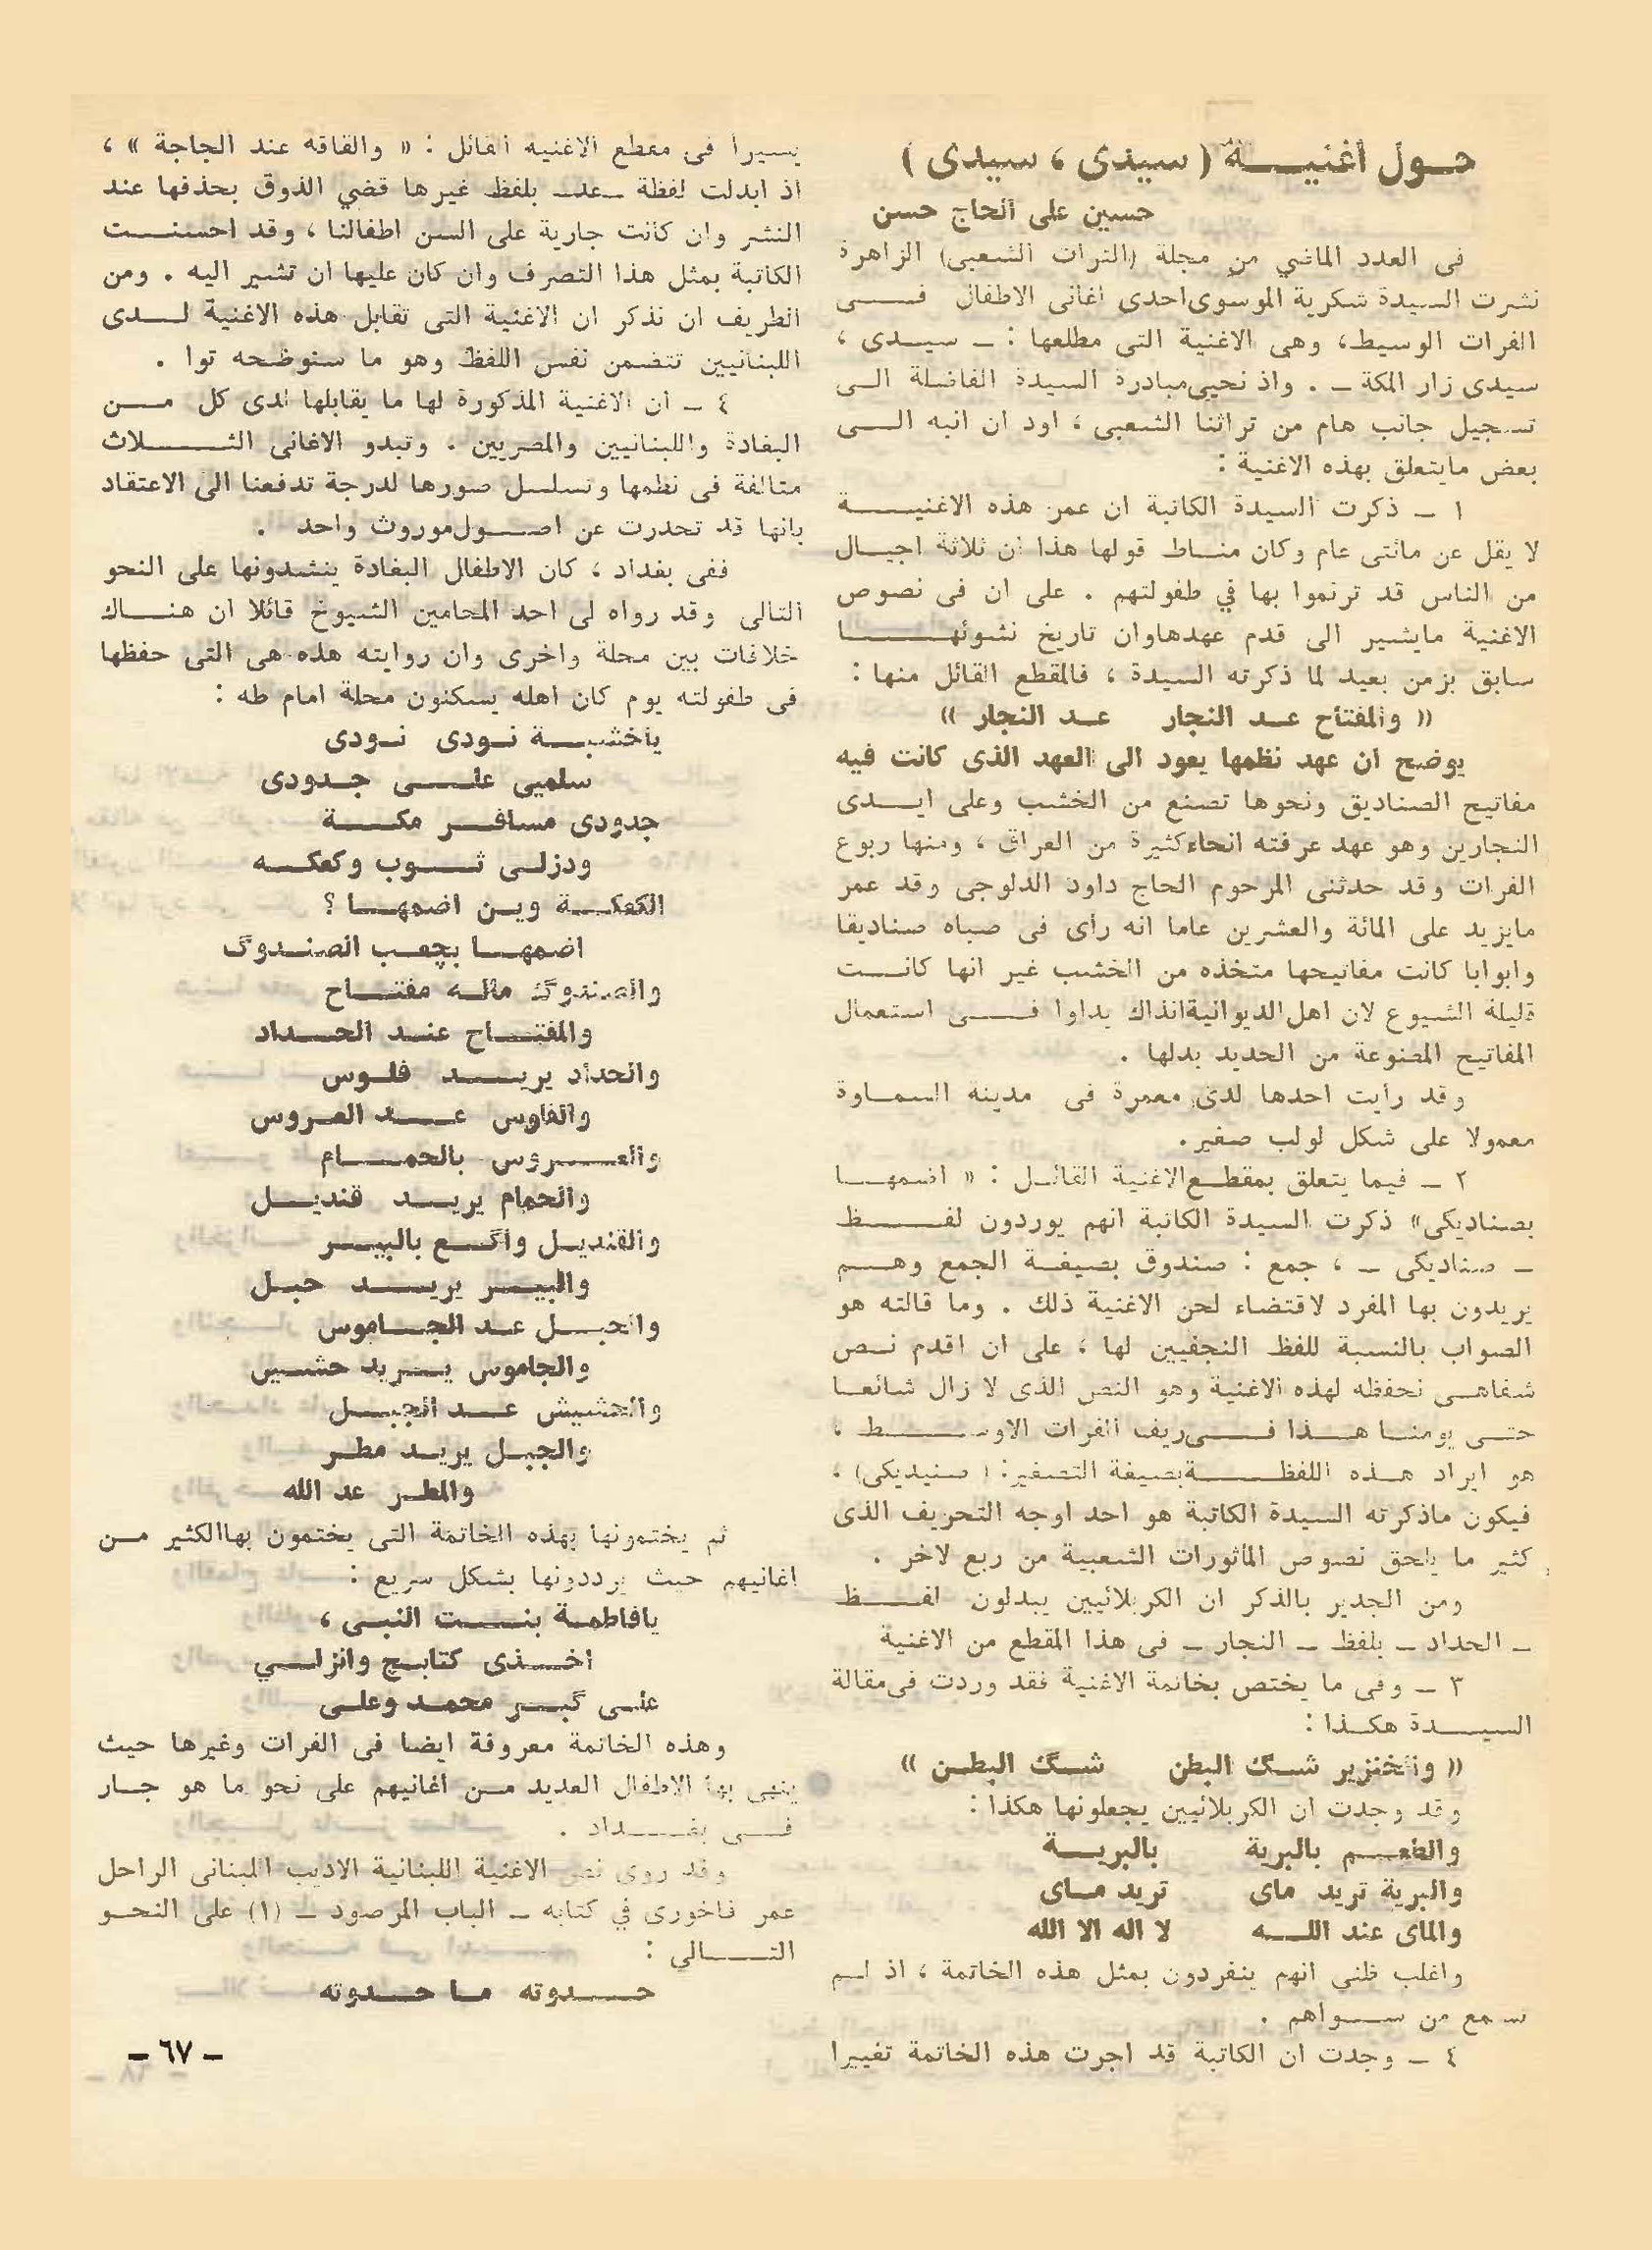 حول أغنية ( سيدى ، سيدى )
حسين على الحاج حسن
فى العدد الماضي من مجلة (التراث الشعبى) الزاهرة
نشرت السيدة شكرية الموسوى احدى اغانى الاطفال فى
الفرات الوسيط، وهى الاغنية التى مطلعها : ـ سيدى ،
سيدى زار المكة ـ . واذ نحيى مبادرة السيدة الفاضلة الى
تسجيل جانب هام من تراثنا الشعبى ، اود ان انبه الى
بعض مايتعلق بهذه الاغنية :
١ ـ ذكرت السيدة الكاتبة ان عمر هذه الاغنية
لا يقل عن مائتى عام وكان مناط قولها هذا ان ثلاثة اجيال
من الناس قد ترنموا بها في طفولتهم . على ان فى نصوص
الاغنية مايشير الى قدم عهدهاوان تاريخ نشوئها
سابق بزمن بعيد لما ذكرته السيدة ، فالمقطع القائل منها :
« والمفتاح عد النجار عد النجار »
يوضح ان عهد نظمها يعود الى العهد الذى كانت فيه
مفاتيح الصناديق ونحوها تصنع من الخشب وعلى ايدى
النجارين وهو عهد عرفته انحاء كثيرة من العراق ، ومنها ربوع
الفرات وقد حدثنى المرحوم الحاج داود الدلوجى وقد عمر
مايزيد على المائة والعشرين عاما انه رأى فى صباه صناديقا
وابوابا كانت مفاتيحها متخذه من الخشب غير انها كانت
قليلة الشيوع لان اهل الديوانية انذاك بداوا فى استعمال
المفاتيح المصنوعة من الحديد بدلها .
وقد رأيت احدها لدى معمرة فى مدينة السماوة
معمولا على شكل لولب صغير.
٢ ـ فيما يتعلق بمقطع الاغنية القائل : « اضمها
بصناديكى» ذكرت السيدة الكاتبة انهم يوردون لفظ
ـ صناديكى ـ ، جمع : صندوق بصيغة الجمع وهم
يريدون بها المفرد لاقتضاء لحن الاغنية ذلك . وما قالته هو
الصواب بالنسبة للفظ النجفيين لها ، على ان اقدم نص
شفاهى نحفظه لهذه الاغنية وهو النص الذى لا زال شائعا
حتى يومنا هذا فى ريف الفرات الاوسط ،
هو ايراد هذه اللفظة بصيغة التصغير: ( صنيديكى) .
فيكون ماذكرته السيدة الكاتبة هو احد اوجه التحريف الذى
كثير ما يلحق نصوص الماثورات الشعبية من ربع لاخر .
ومن الجدير بالذكر ان الكربلائيين يبدلون لفظ
ـ الحداد ـ بلفظ ـ النجار ـ فى هذا المقطع من الاغنية
٣ ـ وفى ما يختص بخاتمة الاغنية فقد وردت فى مقالة
السيدة هكذا :
« والخنزير شگ البطن شگ البطن »
وقد وجدت ان الكربلائيين يجعلونها هكذا :
والطعم بالبرية بالبرية
والبرية تريد ماى تريد ماى
والماى عند الله لا اله الا الله
واغلب ظني انهم ينفردون بمثل هذه الخاتمة ، اذ لم
سمع من سواهم .
٤ ـ وجدت ان الكاتبة قد اجرت هذه الخاتمة تغييرا
يسيرا فى مقطع الاغنيه القائل : « والقاقه عند الجاجة » ،
اذ ابدلت لفظة ـعدـ بلفظ غيرها قضي الذوق بحذفها عند
النشر وان كانت جارية على السن اطفالنا ، وقد احسنت
الكاتبة بمثل هذا التصرف وان كان عليها ان تشير اليه . ومن
الطريف ان نذكر ان الاغنية التى تقابل هذه الاغنية لدى
اللبنانيين تتضمن نفس اللفظ وهو ما سنوظحه توا .
٤ ـ ان الاغنية المذكورة لها ما يقابلها لدى كل من
البغادة واللبنانيين والمصريين . وتبدو الاغانى الثلاث
متالفة فى نظمها وتسلسل صورها لدرجة تدفعنا الى الاعتقاد
بانها قد تحدرت عن اصول موروث واحد .
ففى بغداد ، كان الاطفال البغادة ينشدونها على النحو
التالى وقد رواه لى احد المحامين الشيوخ قائلا ان هناك
خلافات بين محلة واخرى وان روايته هذه هى التى حفظها
فى طفولته يوم كان اهله يسكنون محلة امام طه :
ياخشبة نودى نودى
سلميى على جدودى
جدودى مسافر مكة
ودزلى ثوب وكعكه
الكعكة وين اضمها ؟
اضمها بچعب الصندوگ
والصندوگ ماله مفتاح
والمفتاح عند الحداد
والحداد يريد فلوس
والفلوس عد العروس
والعروس بالحمام
والحمام يريد قنديل
والقنديل واگع بالبير
والبير يريد حبل
والحبل عد الجاموس
والجاموس يريد حشيش
والحشيش عد الجبل
والجبل يريد مطر
والمطر عد الله
ثم يختمونها بهذه الخاتمة التى يختمون بهاالكثير من
اغانيهم حيث يرددونها بشكل سريع :
يافاطمة بنت النبى ،
اخذى كتابج وانزلي
على گبر محمد وعلى
وهذه الخاتمة معروفة ايضا فى الفرات وغيرها حيث
ينهى بها الاطفال العديد من اغانيهم على نحو ما هو جار
فى بغداد .
وقد روى نص الاغنية اللبنانية الاديب اللبنانى الراحل
عمر فاخورى في كتابه ـ الباب المرصود ـ (١) على النحو
التالي :
حدوته ما حدوته
ـ ٦٧ ـ